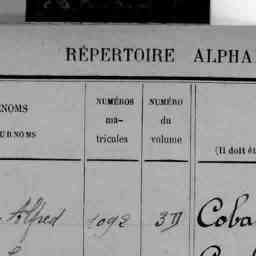 RÉPERTOIRE ALPHA
NOMS
URNOMS
NUMÉROS
ma-
tricules
NUMÉRO
du
volume
(Il doit êt
Alfred 1092 3D Coba